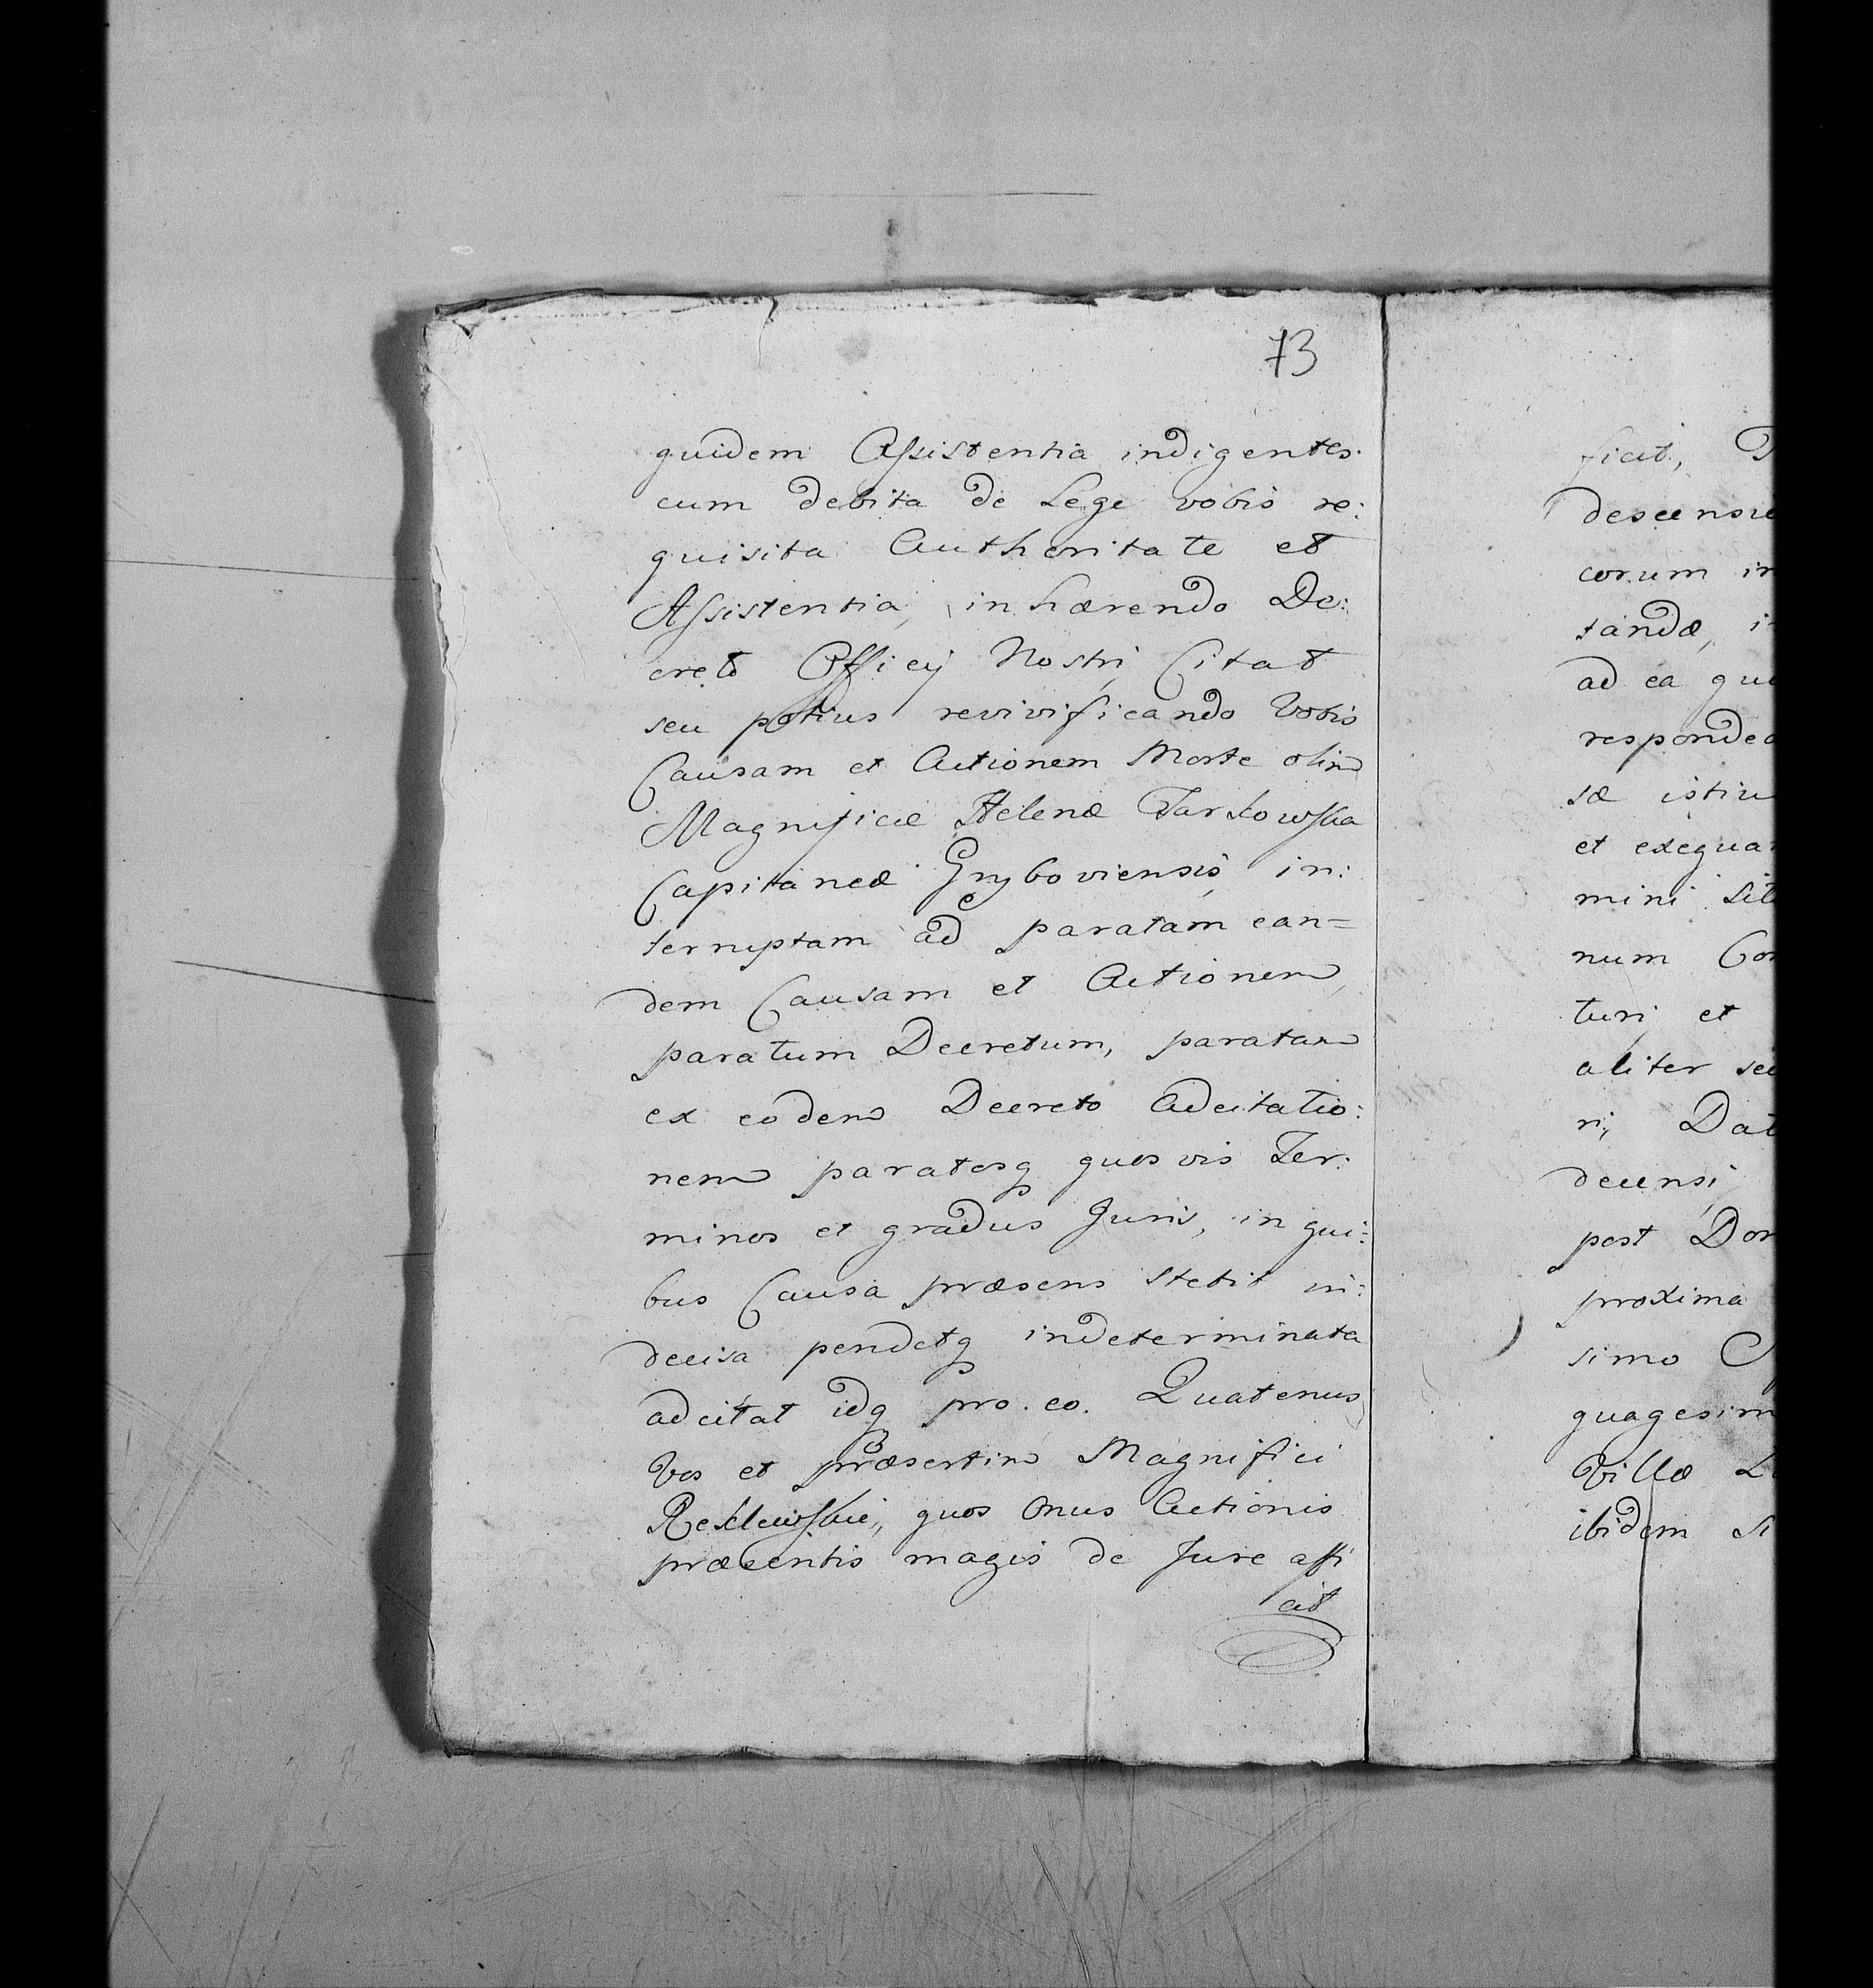 73
quidem Assistentia indigentes
cum debita de Lege vobis re:
quisita Authoritate et
Assistentia, inhærendo De:
creto Officij Nostri, Citat
seu potius revivificando Vobis
Causam et Actionem Morte olim
Magnificæ Helenæ Tarłowska
Capitaneæ Gryboviensis, in:
terruptam ad paratam ean=
dem Causam et Actionem,
paratum Decretum, paratam
ex eodem Decreto Adcitatio:
nem paratosq quosvis Ter:
minos et gradus Juris, in qui:
bus Causa præsens stetit in:
decisa pendetq indeterminata
adcitat idq pro eo. Quatenus
Vos et præsertim Magnifici
Reklewskie, quos Onus Actionis
præsentis magis de Jure affi
cit
ficit,
descensu
corum in
tandæ,
ad ea qu
responde
sæ istiu
et exequa
mini sit
num Con
turi, et
aliter se
ri, Dat
decensi
post Dom
proxima
simo
quagesim
Villæ
ibidem